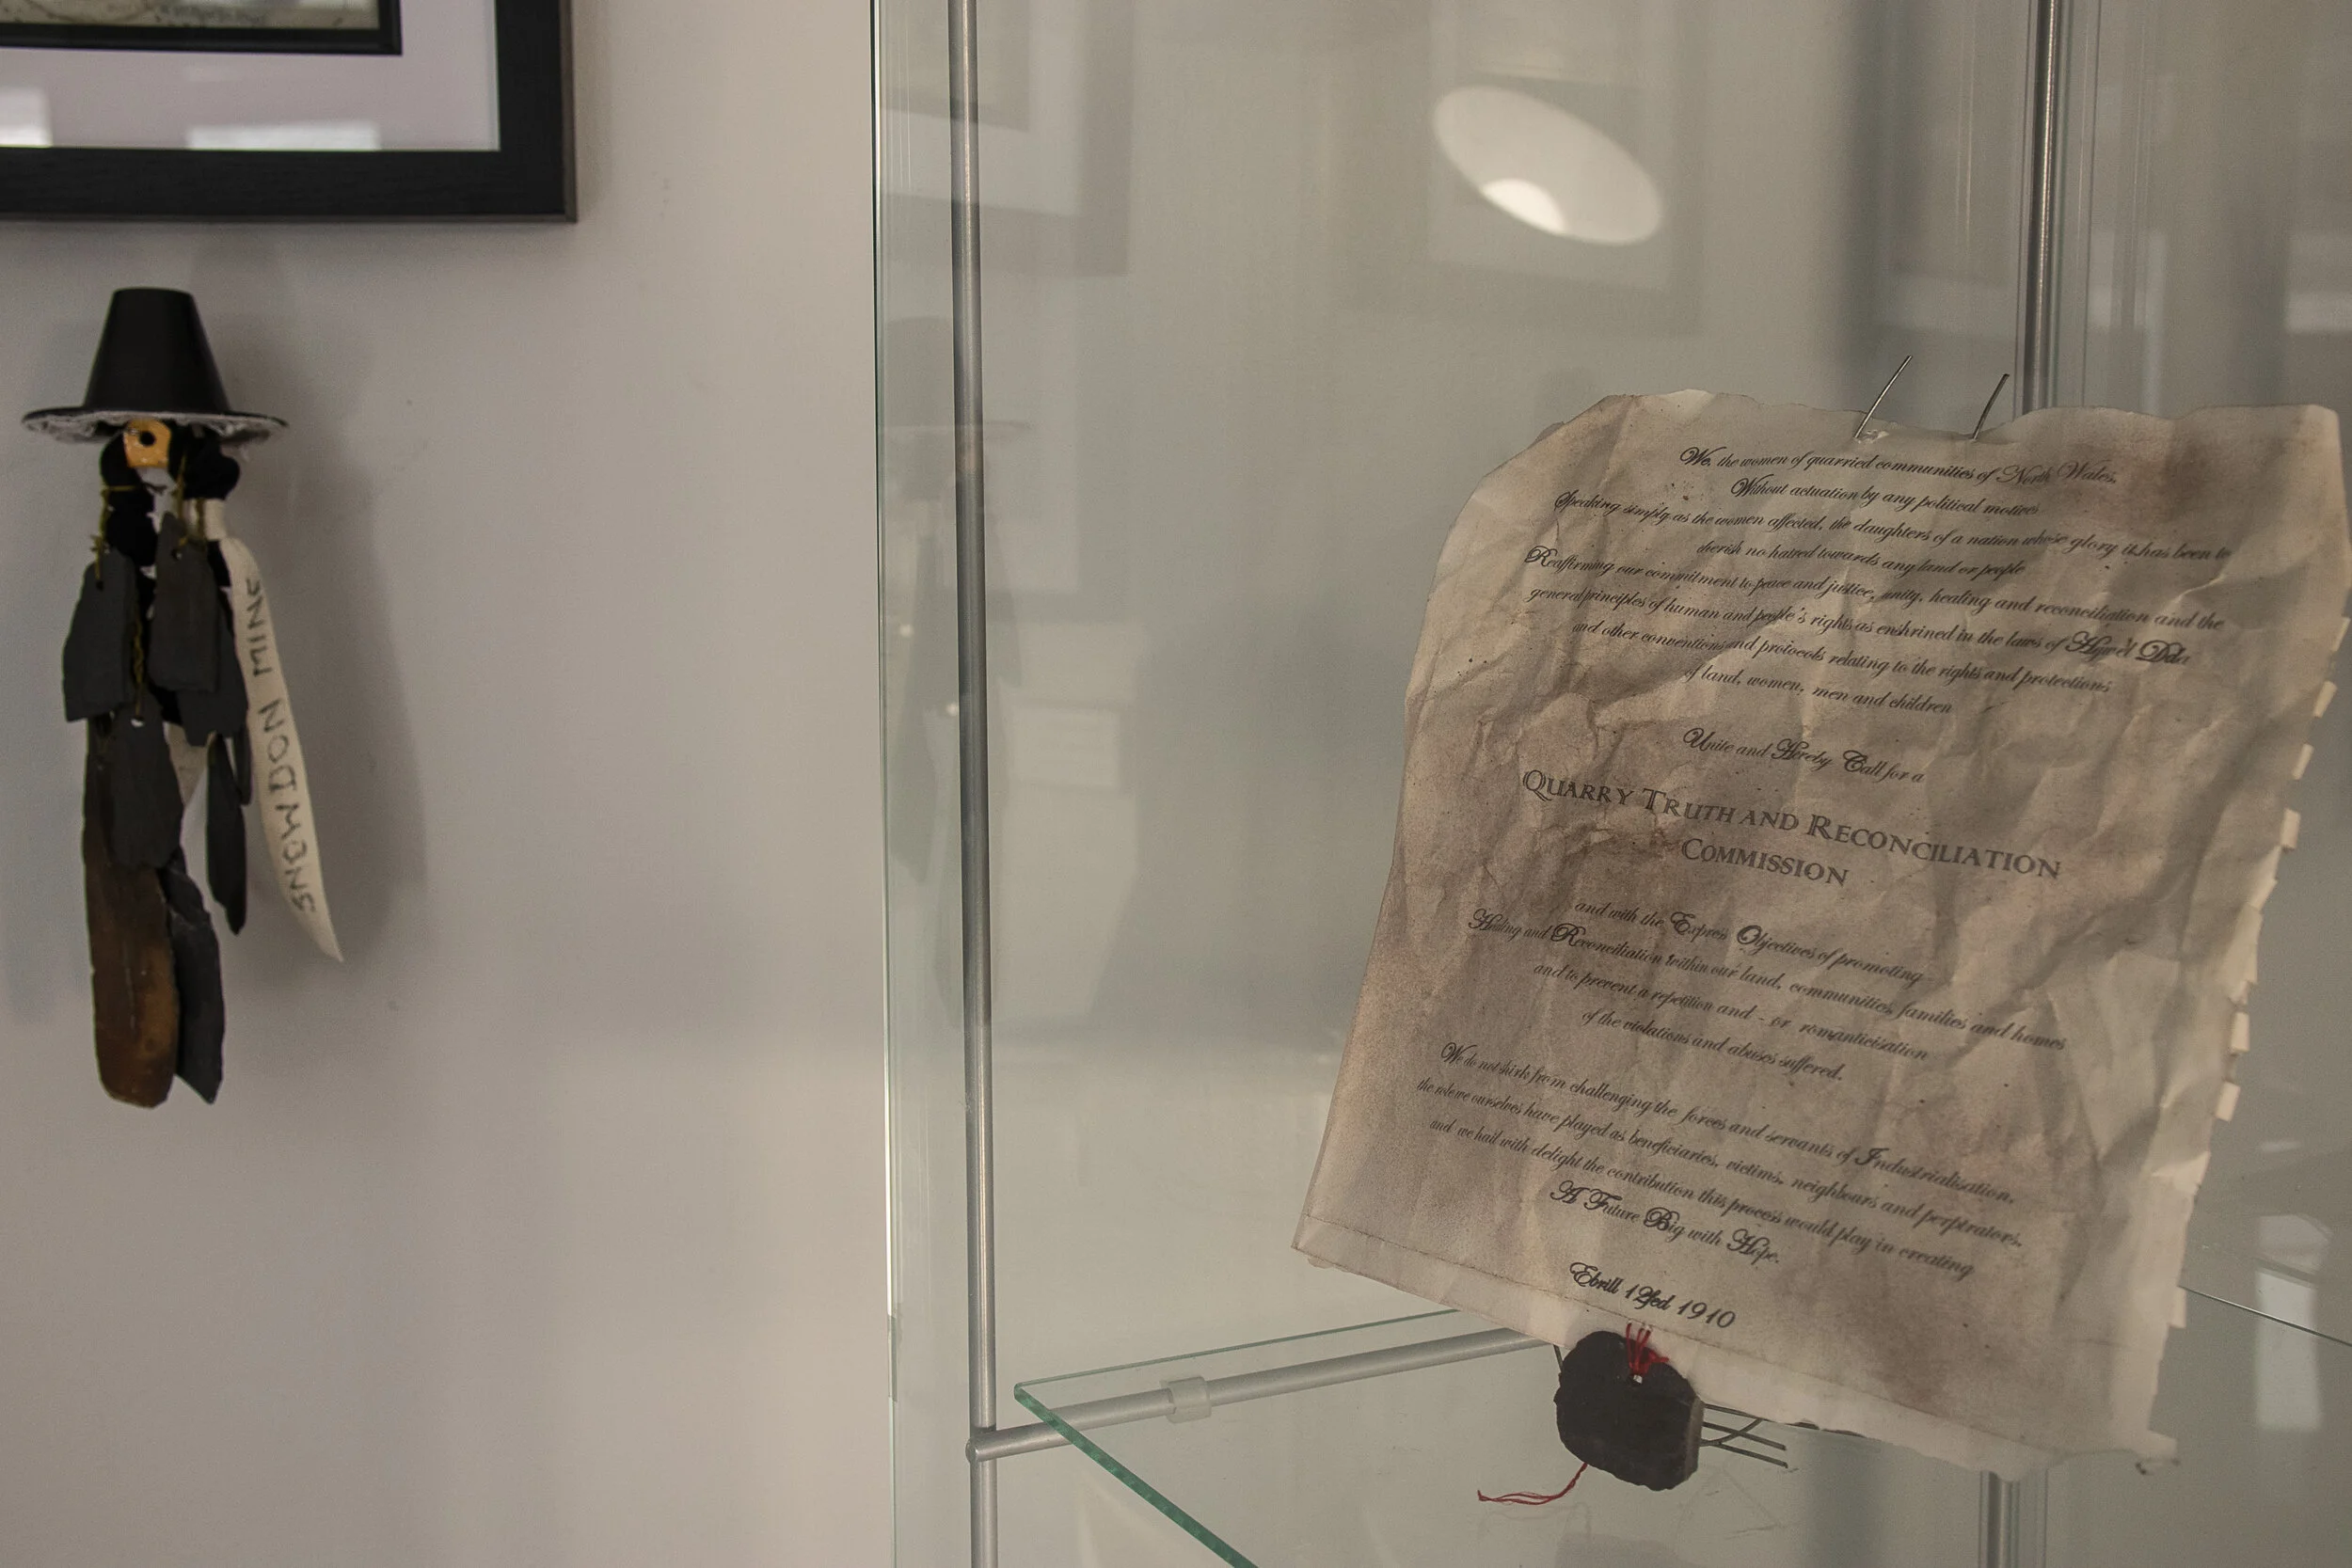 SNOWDON MINE
We, the women of quarried communities of North Wales,
Without actuation by any political motives
Speaking simply as the women affected, the daughters of a nation whose glory it has been to
cherish no hatred towards any land or people
Reaffirming our commitment to peace and justice, unity, healing and reconciliation and the
general principles of human and people's rights as enshrined in the laws of Hywel Dda
and other conventions and protocols relating to the rights and protections
of land, women, men and children
Unite and Hereby Call for a
QUARRY TRUTH AND RECONCILIATION
COMMISSION
and with the Express Objectives of promoting
Healing and Reconciliation within our land, communities, families and homes
and to prevent a repetition and - or romanticisation
of the violations and abuses suffered.
We do not shirk from challenging the forces and servants of Industrialisation,
the role we ourselves have played as beneficiaries, victims, neighbours and perpetrators,
and we hail with delight the contribution this process would play in creating
A Future Big with Hope.
Ebrill 12fed 1910